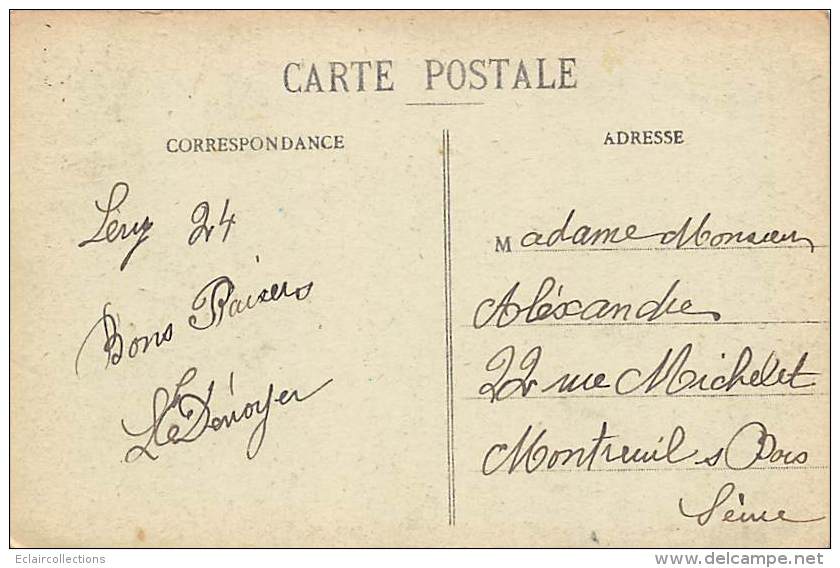 CARTE POSTALE
CORRESPONDANCE
24
Bons Baisers
Denoyer
ADRESSE
Madame Monsieur
Aléxandre
22 rue Michelet
Montreuil s Bois
Seine
Eclaircollections
www.delcampe.net